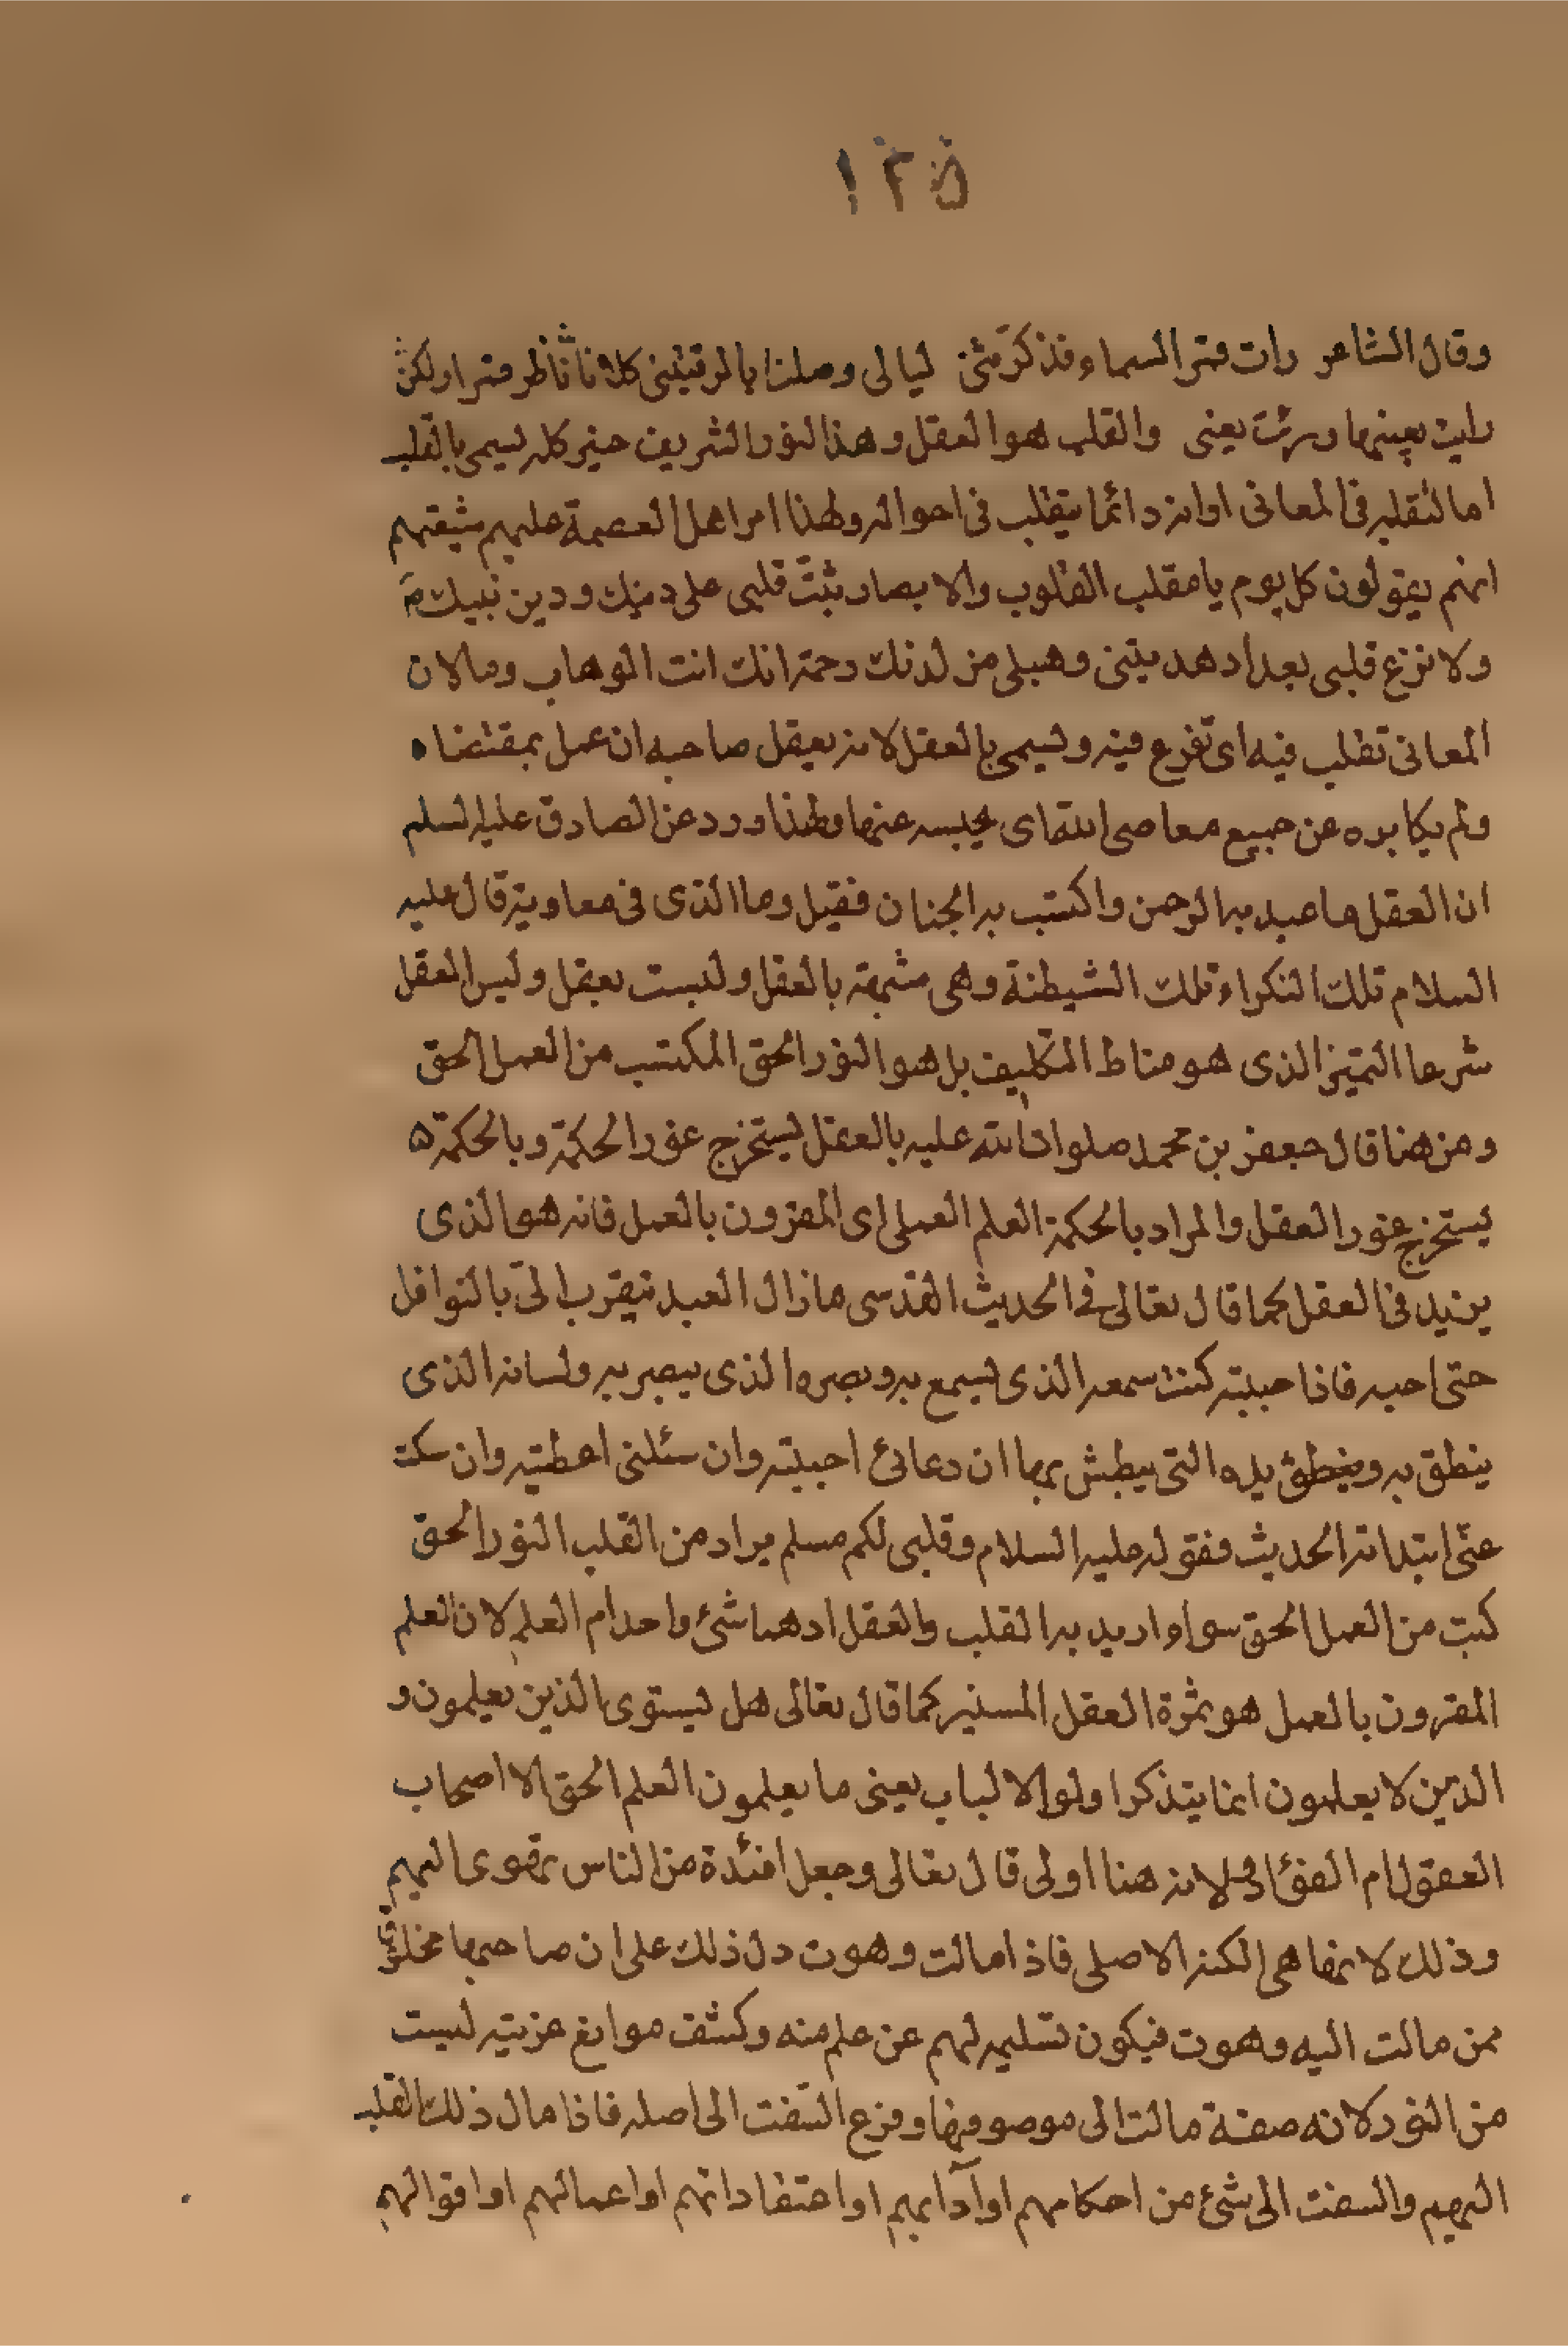 ١٢٥
وقال الشاعر رات قمر السماء فذكرتني ليالي وصلنا بالرقتيني كلانا ناظر قمرا ولكن
رايت بعينها ورئت بعيني والقلب هو العقل وهذا النور الشريف خير كله يسمى بالقلب
اما لتقلبه في المعاني اوانه دائما يتقلب في احواله ولهذا امر اهل العصمة عليهم شيعتهم
انهم يقولون كل يوم يا مقلب القلوب والابصار ثبت قلبي على دينك ودين نبيك ص
ولا تزغ قلبي بعد اد هديتني وهبلي من لدنك رحمة انك انت الوهاب ومالان
المعاني تقلب فيه اي تفرع فيه ويسمى بالعقل لانه يعقل صاحبه ان عمل بمقتضاه
ولم يكابره عن جميع معاصي الله اى يحبسه عنها ولهذا ورد عن الصادق عليه السلم
ان العقل ما عبد به الرحمن واكتسب به الجنان فقيل وما الذى في معاوية قال عليه
السلام تلك النكراء تلك الشيطنة وهى مشبهة بالعقل وليست بعقل وليس العقل
شرعا التميز الذى هو مناط التكليف بل هو النور الحق المكتسب من العمل الحق
ومن هنا قال جعفر بن محمد صلوات الله عليه بالعقل يستخرج غور الحكمة وبالحكمة ه
يستخرج غور العقل والمراد بالحكمة العلم العملى اى المقرون بالعمل فانه هو الذى
يزيد في العقل كما قال تعالى في الحديث القدسى ما زال العبد يتقرب الىّ بالنوافل
حتى احبه فاذا حببته كنت سمعه الذى يسمع به وبصره الذى يبصر به ولسانه الذى
ينطق به ويده التى يبطش بها ان دعانى اجبته وان سئلنى اعطيته وان سكت
عنى ابتداته الحديث فقوله عليه السلام وقلبى لكم مسلم يراد من القلب النور الحق
كتب من العمل الحق سواء اريد به القلب والعقل اد هما شئ واحد ام العلم لان العلم
المقرون بالعمل هو ثمرة العقل المستنير كما قال تعالى هل يستوى الذين يعلمون و
الذين لا يعلمون انما يتذكر اولوا الالباب يعنى ما يعلمون العلم الحق الا اصحاب
العقول ام الفؤاد لانه هنا اولى قال تعالى وجعل افئدة من الناس تهوى اليهم
وذلك لانها هى الكنز الاصلى فاذا مالت وهوت دل ذلك على ان صاحبها مخلوق
ممن مالت اليه وهوت فيكون تسليمه لهم عن علم منه وكشف موانع عزيته ليست
من النور لانه صفة مالت الى موصوفها وفرع التفت الى اصله فاذا مال ذلك القلب
اليهم والتفت الى شئ من احكامهم او آدابهم او اعتقاداتهم او اعمالهم او اقوالهم